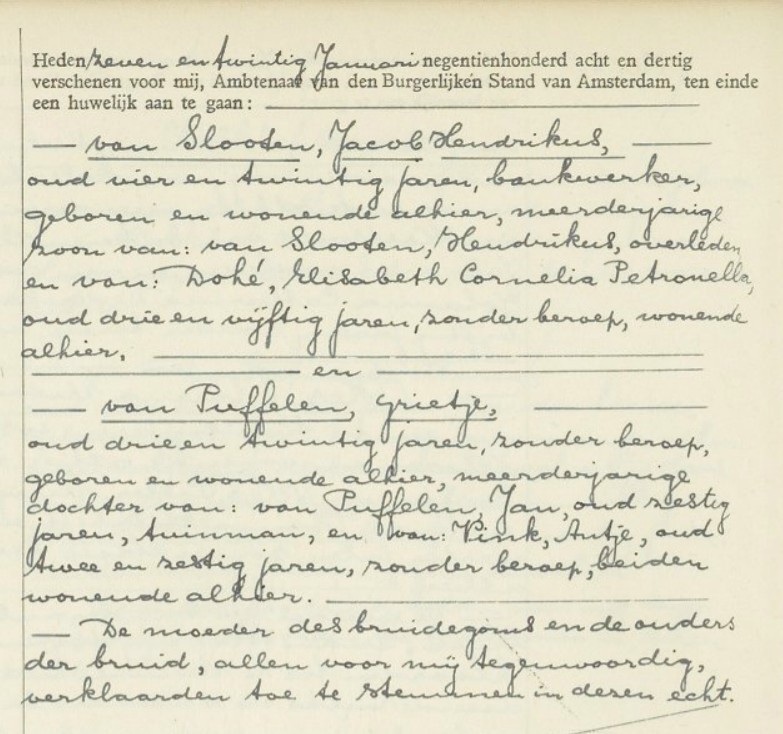 Heden, zeven en twintig Januari negentienhonderd acht en dertig
verschenen voor mij, Ambtenaar van den Burgerlijken Stand van Amsterdam, ten einde
een huwelijk aan te gaan:
— van Slooten, Jacob Hendrikus, —
oud vier en twintig jaren, bankwerker,
geboren en wonende alhier, meerderjarige
zoon van: van Slooten, Hendrikus, overleden,
en van: Dohé, Elisabeth Cornelia Petronella,
oud drie en vijftig jaren, zonder beroep, wonende
alhier. —
— en —
— van Puffelen, Grietje, —
oud drie en twintig jaren, zonder beroep,
geboren en wonende alhier, meerderjarige
dochter van: van Puffelen, Jan, oud zestig
jaren, tuinman, en van: Vink, Antje, oud
twee en zestig jaren, zonder beroep, beiden
wonende alhier. —
— De moeder des bruidegoms en de ouders
der bruid, allen voor mij tegenwoordig,
verklaarden toe te stemmen in dezen echt.